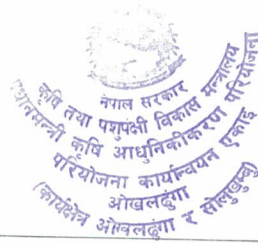 नेपाल सरकार
कृषि तथा पशुपंक्षी विकास मन्त्रालय
प्रधानमन्त्री कृषि आधुनिकीकरण परियोजना
परियोजना कार्यान्वयन एकाई
ओखलढुंगा
(कार्यक्षेत्र ओखलढुंगा र सोलुखुम्बु)